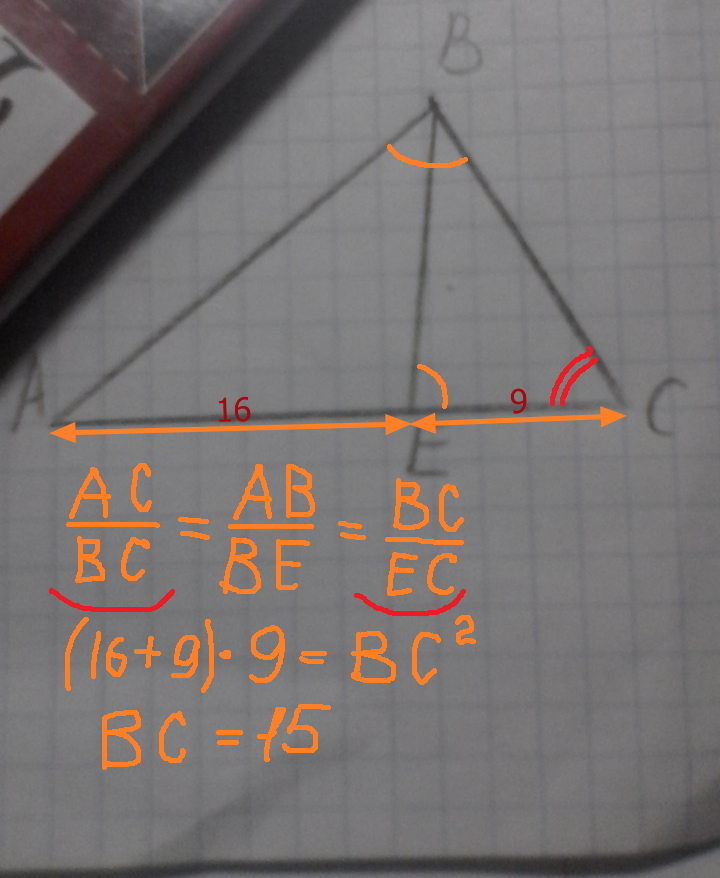 B
A
16
9
C
E
AC/BC = AB/BE = BC/EC
(16+9)·9=BC²
BC=15